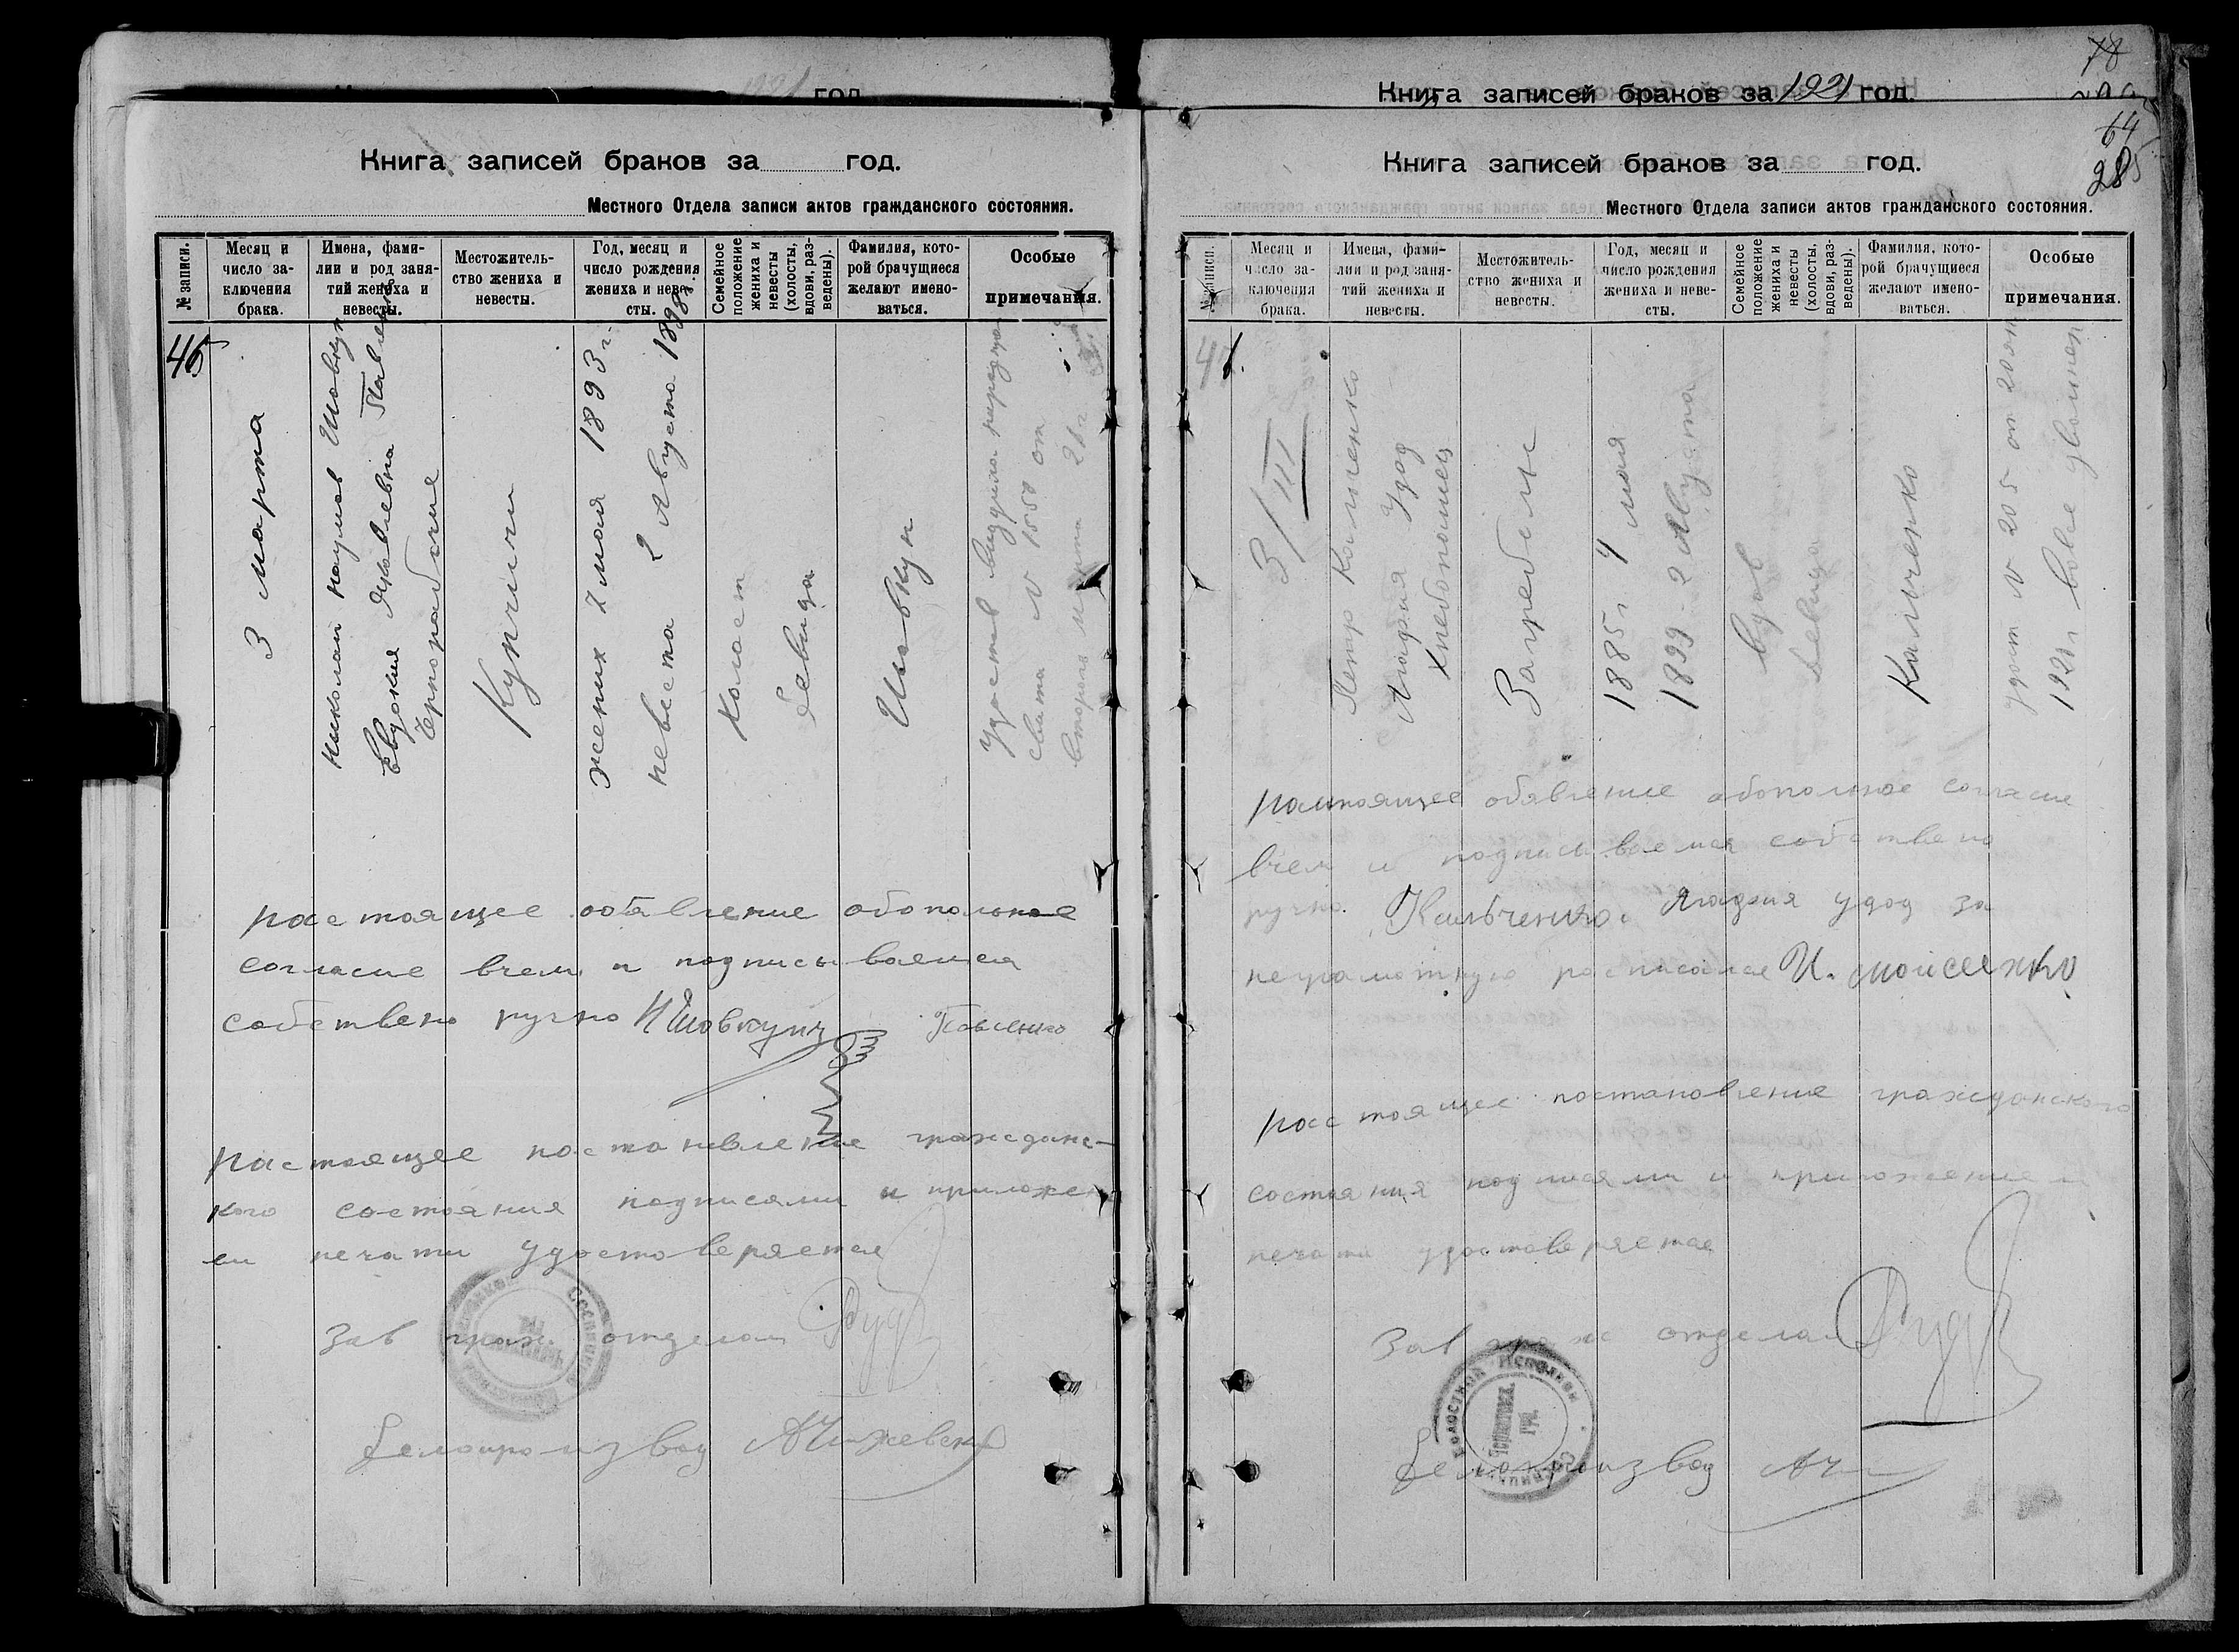 год
Книга записей браков за год.
Местного Отдела записи актов гражданского состояния.
№ записи.
Месяц и число за-
ключения
брака.
Имена, фами-
лии и род заня-
тий жениха и
невесты.
Местожитель-
ство жениха и
невесты.
Год, месяц и
число рождения
жениха и неве-
сты.
Семейное
положение
жениха и
невесты
(холосты,
вдовы, раз-
ведены).
Фамилия, кото-
рой брачущиеся
желают имено-
ваться.
Особые
примечания.
46
3 марта
Николай Наумов Шовкун
Евдокия Яковлевна
Чернорабочие
Купчичи
жених 2 мая 1893 г.
невеста 2 Августа 1898
холост
девица
Шовкун
N 1550 от
марта 21 г
растоящее обявление обопольное
согласие вчем и подписываемся
собствено ручно НШовкунъ Павленко
растоящее постоневление гражданс-
кого состояния подписями и приложени
ем печати удостоверяется
Зав граж. отделом
Делопроизвод АЧижевский
78
Книга записей браков за 1921 год.
64
285
Книга записей браков за год.
Местного Отдела записи актов гражданского состояния.
№ записи.
Месяц и
число за-
ключения
брака.
Имена, фами-
лии и род заня-
тий жениха и
невесты.
Местожитель-
ство жениха и
невесты.
Год, месяц и
число рождения
жениха и неве-
сты.
Семейное
положение
жениха и
невесты
(холосты,
вдовы, раз-
ведены).
Фамилия, кото-
рой брачущиеся
желают имено-
ваться.
Особые
примечания.
47.
3/III
Петр Кольченко
Агафия Удод
Хлебопашец
Загребелье
1885 г. 4 мая
1899 - 2 Августа
вдов
девица
Кальченко
удост N 205 от 20
1920 г
растоящее обявление обопольное согласие
вчем и подписываемся собствено
ручно. Кальченко. Агафия удод за
неграмотную росписался И. моисеенко
растоящее постановление гражданского
состояния подписями и приложением
печати удостоверяется
Зав граж отделам
Волостной Исполком
Делопроизвод АЧ